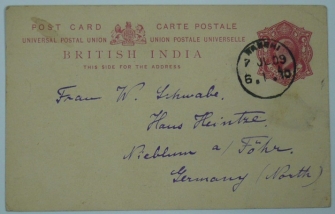 POST CARD CARTE POSTALE
UNIVERSAL POSTAL UNION UNION POSTALE UNIVERSELLE
BRITISH INDIA
THIS SIDE FOR THE ADDRESS
7 JL 09
Frau W. Schwabe.
Haus Heintze.
Nieblum a/ Föhr.
Germany (North)